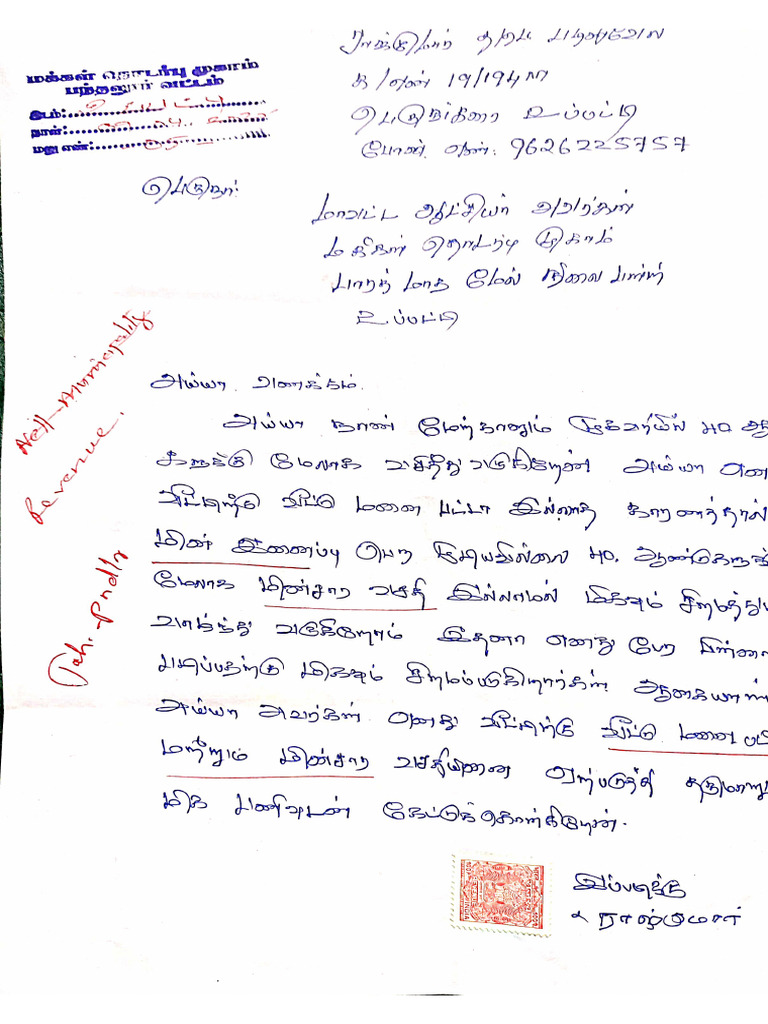 மக்கள் தொடர்பு முகாம்
பந்தலூர் வட்டம்
இடம்: உப்பட்டி
நாள்:
மனு எண்:
ராஜ்குமார்
க/எண் 19/194
பெருங்கரை உப்பட்டி
போன். எண்: 9626225757
பெருநர்:
மாவட்ட ஆட்சியர் அவர்கள்
மக்கள் தொடர்பு முகாம்
பாரத் மாதா மேல் நிலை பள்ளி
உப்பட்டி
Nell-Municipality
Revenue.
Tah. Pndlr
அய்யா வணக்கம்.
அய்யா நான் மேற்கானும் முகவரியில் 40 ஆ
களுக்கு மேலாக வசித்து வருகிறேன் அய்யா என
வீட்டிற்கு வீட்டு மனை பட்டா இல்லாத காரணத்தால்
மின் இணைப்பு பெற முடியவில்லை 40. ஆண்டுகளுக்
மேலாக மின்சார வசதி இல்லாமல் மிகவும் சிரமத்து
வாழ்ந்து வருகிறோம் இதனா எனது பேர பிள்ளை
படிப்பதற்கு மிகவும் சிரமப்படுகிறார்கள். ஆகையால்
அய்யா அவர்கள் எனது வீட்டிற்கு வீட்டு மனை ப
மற்றும் மின்சார வசதியினை ஏற்படுத்தி தருமாறு
மிக பணிவுடன் கேட்டுக்கொள்கிறேன்.
இப்படிக்கு
ராஜ்குமார்